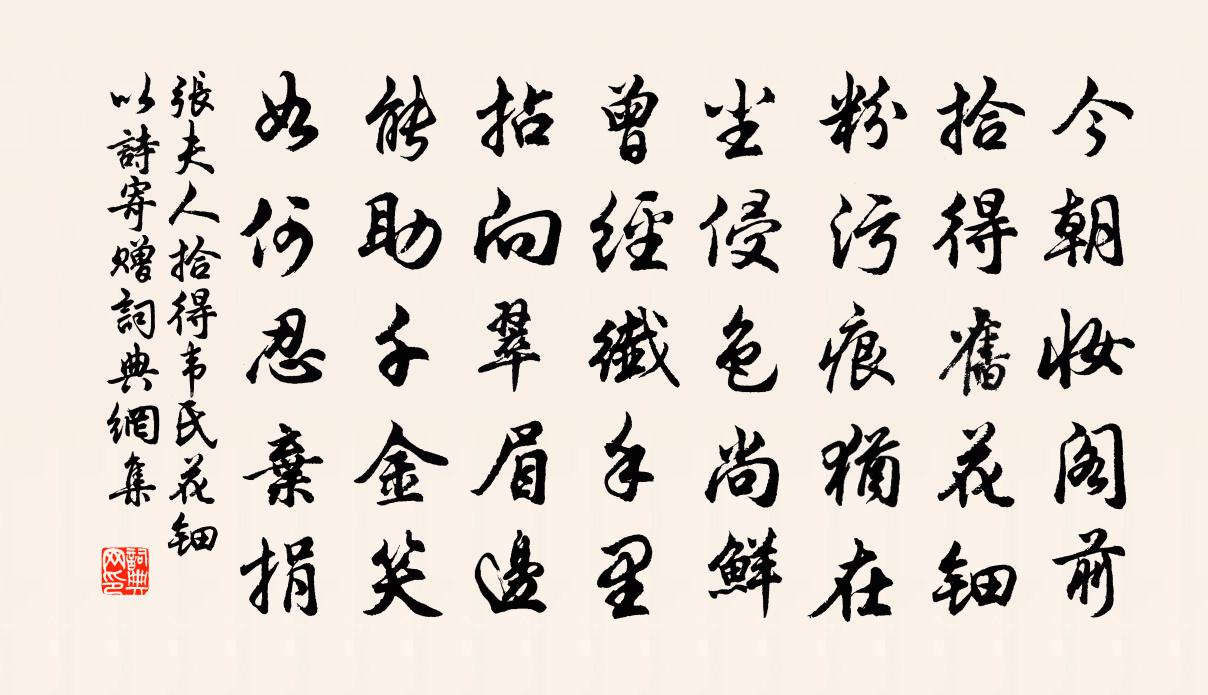 今朝妝阁前
拾得舊花钿
粉污痕猶在
尘侵色尚鮮
曾經纖手里
拈向翠眉邊
能助千金笑
如何忍棄捐
張夫人拾得韦氏花钿
以詩寄赠詞典網集
詞典
网印